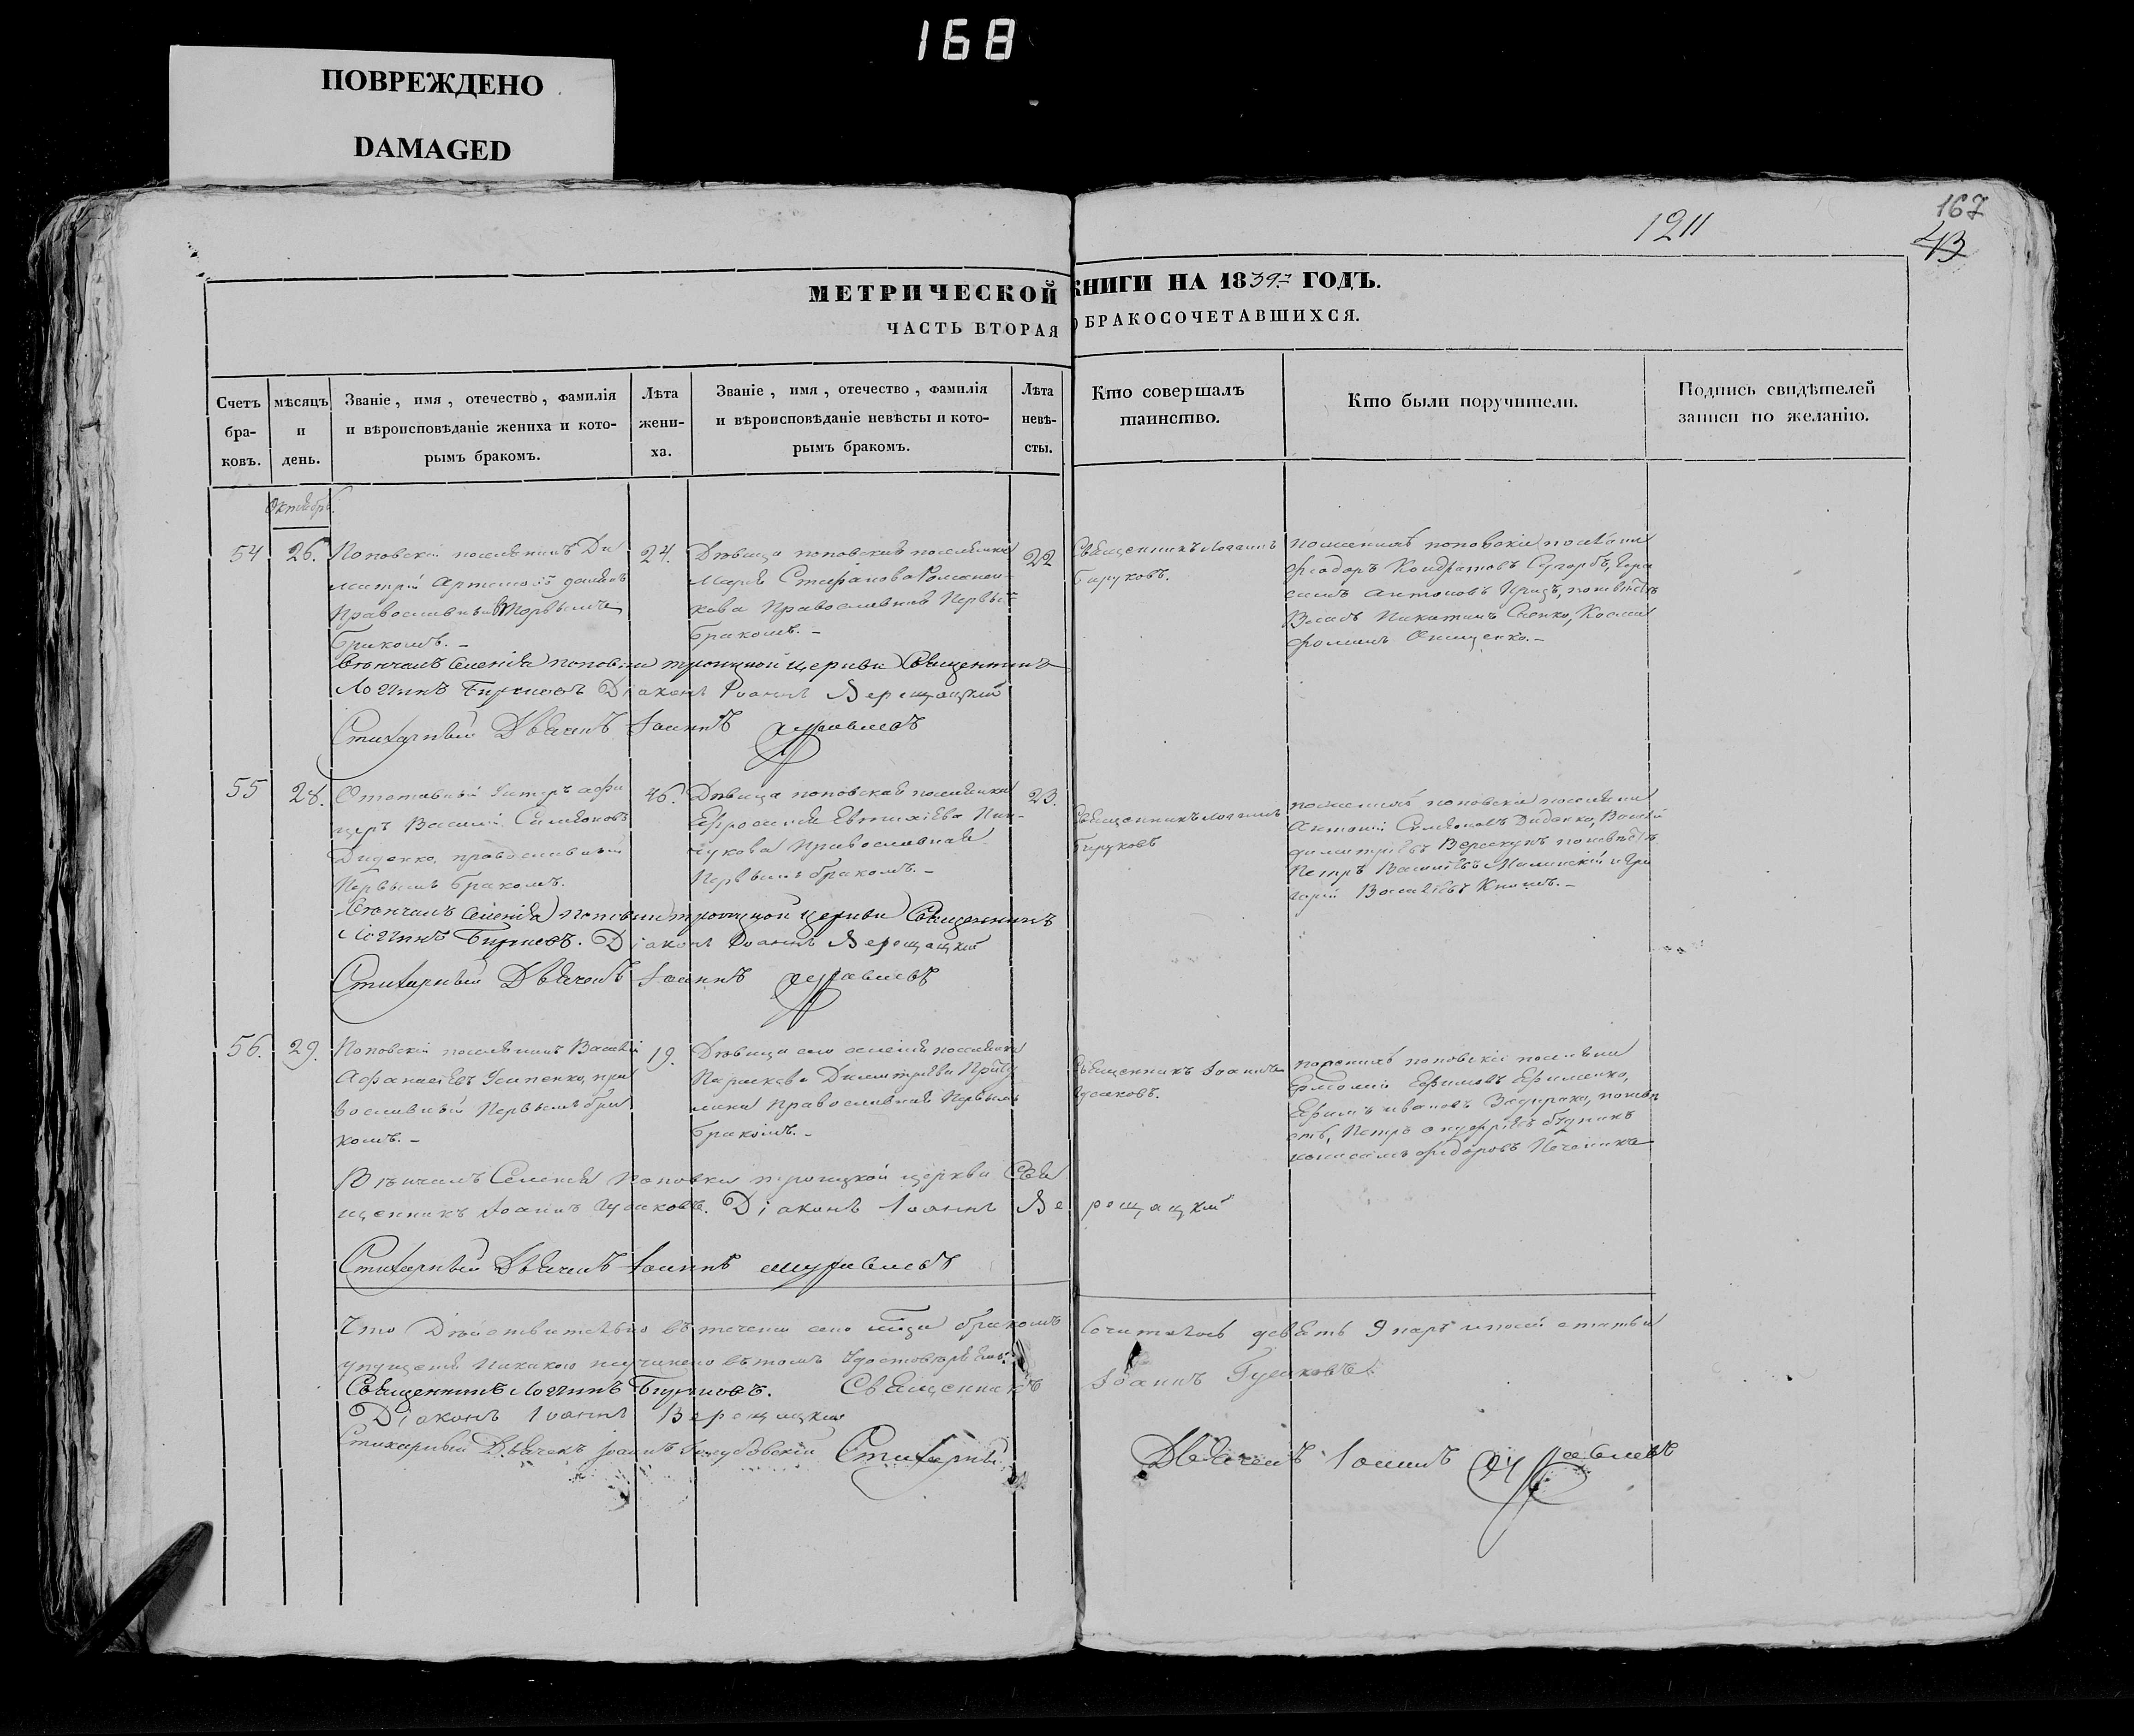 168
ПОВРЕЖДЕНО
DAMAGED
167
1211
43
МЕТРИЧЕСКОЙ КНИГИ НА 1839 ГОДЪ.
ЧАСТЬ ВТОРАЯ О БРАКОСОЧЕТАВШИХСЯ.
Счетъ бра-ковъ.
мѣсяцъ и день.
Званіе, имя, отечество, фамилія
и вѣроисповѣданіе жениха и кото-
рымъ бракомъ.
Лѣта жени-ха.
Званіе, имя, отечество, фамилія
и вѣроисповѣданіе невѣсты и кото-
рымъ бракомъ.
Лѣта невѣ-сты.
Кто совершалъ
таинство.
Кто были поручители.
Подпись свидѣтелей
записи по желанію.
Октябрь.
54
26.
Поповскій поселянинъ Ди
митрій
Православный Первымъ
бракомъ.
24.
Дѣвица поповская поселянка
Марія Стефанова Романен-
кова Православная Первы
бракомъ.
22
Священникъ Логгинъ
Бируковъ.
поженихѣ поповскіе поселяни
Феодоръ Кондратовъ
антоновъ
Власъ Никитинъ Косма
Фоминъ Онищенко.
Вѣнчалъ Селенія поповки троицкой церкви Священникъ
Логгинъ Бируковъ Діаконъ Іоаннъ Верещацкій
Стихарный Дьячекъ Іоаннъ Журавлевъ
55
28.
Отставный Унтеръ афи
церъ Василій Симеоновъ
Диденко, православный
Первымъ бракомъ.
46.
Дѣвица поповская поселянка
Ефросинія Евтихіева
чукова Православная
Первымъ бракомъ.
23.
Священникъ Логгинъ
Бируковъ
поженихѣ поповскіе поселяни
Антоній Симеоновъ Диденко, Василій
димитріевъ поневѣстѣ
Петръ Василіевъ и Гри
горій Василіевъ
Вѣнчалъ Селенія поповки троицкой церкви Священникъ
Логгинъ Бируковъ. Діаконъ Іоаннъ Верещацкій
Стихарный Дьячекъ Іоаннъ Журавлевъ
56.
29.
Поповскій поселянинъ Василій
Афанасіевъ Усипенко, пра
вославный Первымъ бра
комъ.
19.
Дѣвица сего селенія поселянка
Параскева Димитріева
Православная Первымъ
бракомъ.
Священникъ Іоаннъ
Гусаковъ.
поженихѣ поповскіе поселяни
Ефимовъ Ефименко,
Ефимъ ивановъ
Петръ онуфріевъ
федоровъ
Вѣнчалъ Селенія Поповки троицкой церкви Свя
щенникъ Іоаннъ Гусаковъ. Діаконъ Іоаннъ Верещацкій
Стихарный Дьячекъ Іоаннъ Журавлевъ
Что Дѣйствительно въ теченіи сего мца бракомъ Сочиталось девять 9 паръ
упущенія никакого неучинено въ томъ Удостовѣряемъ.
Священникъ Логгинъ Бируковъ. Священникъ Іоаннъ Гусаковъ
Діаконъ Іоаннъ Верещацкій
Стихарный Дьячекъ Іоаннъ Стихарный Дьячекъ Іоаннъ Журавлевъ